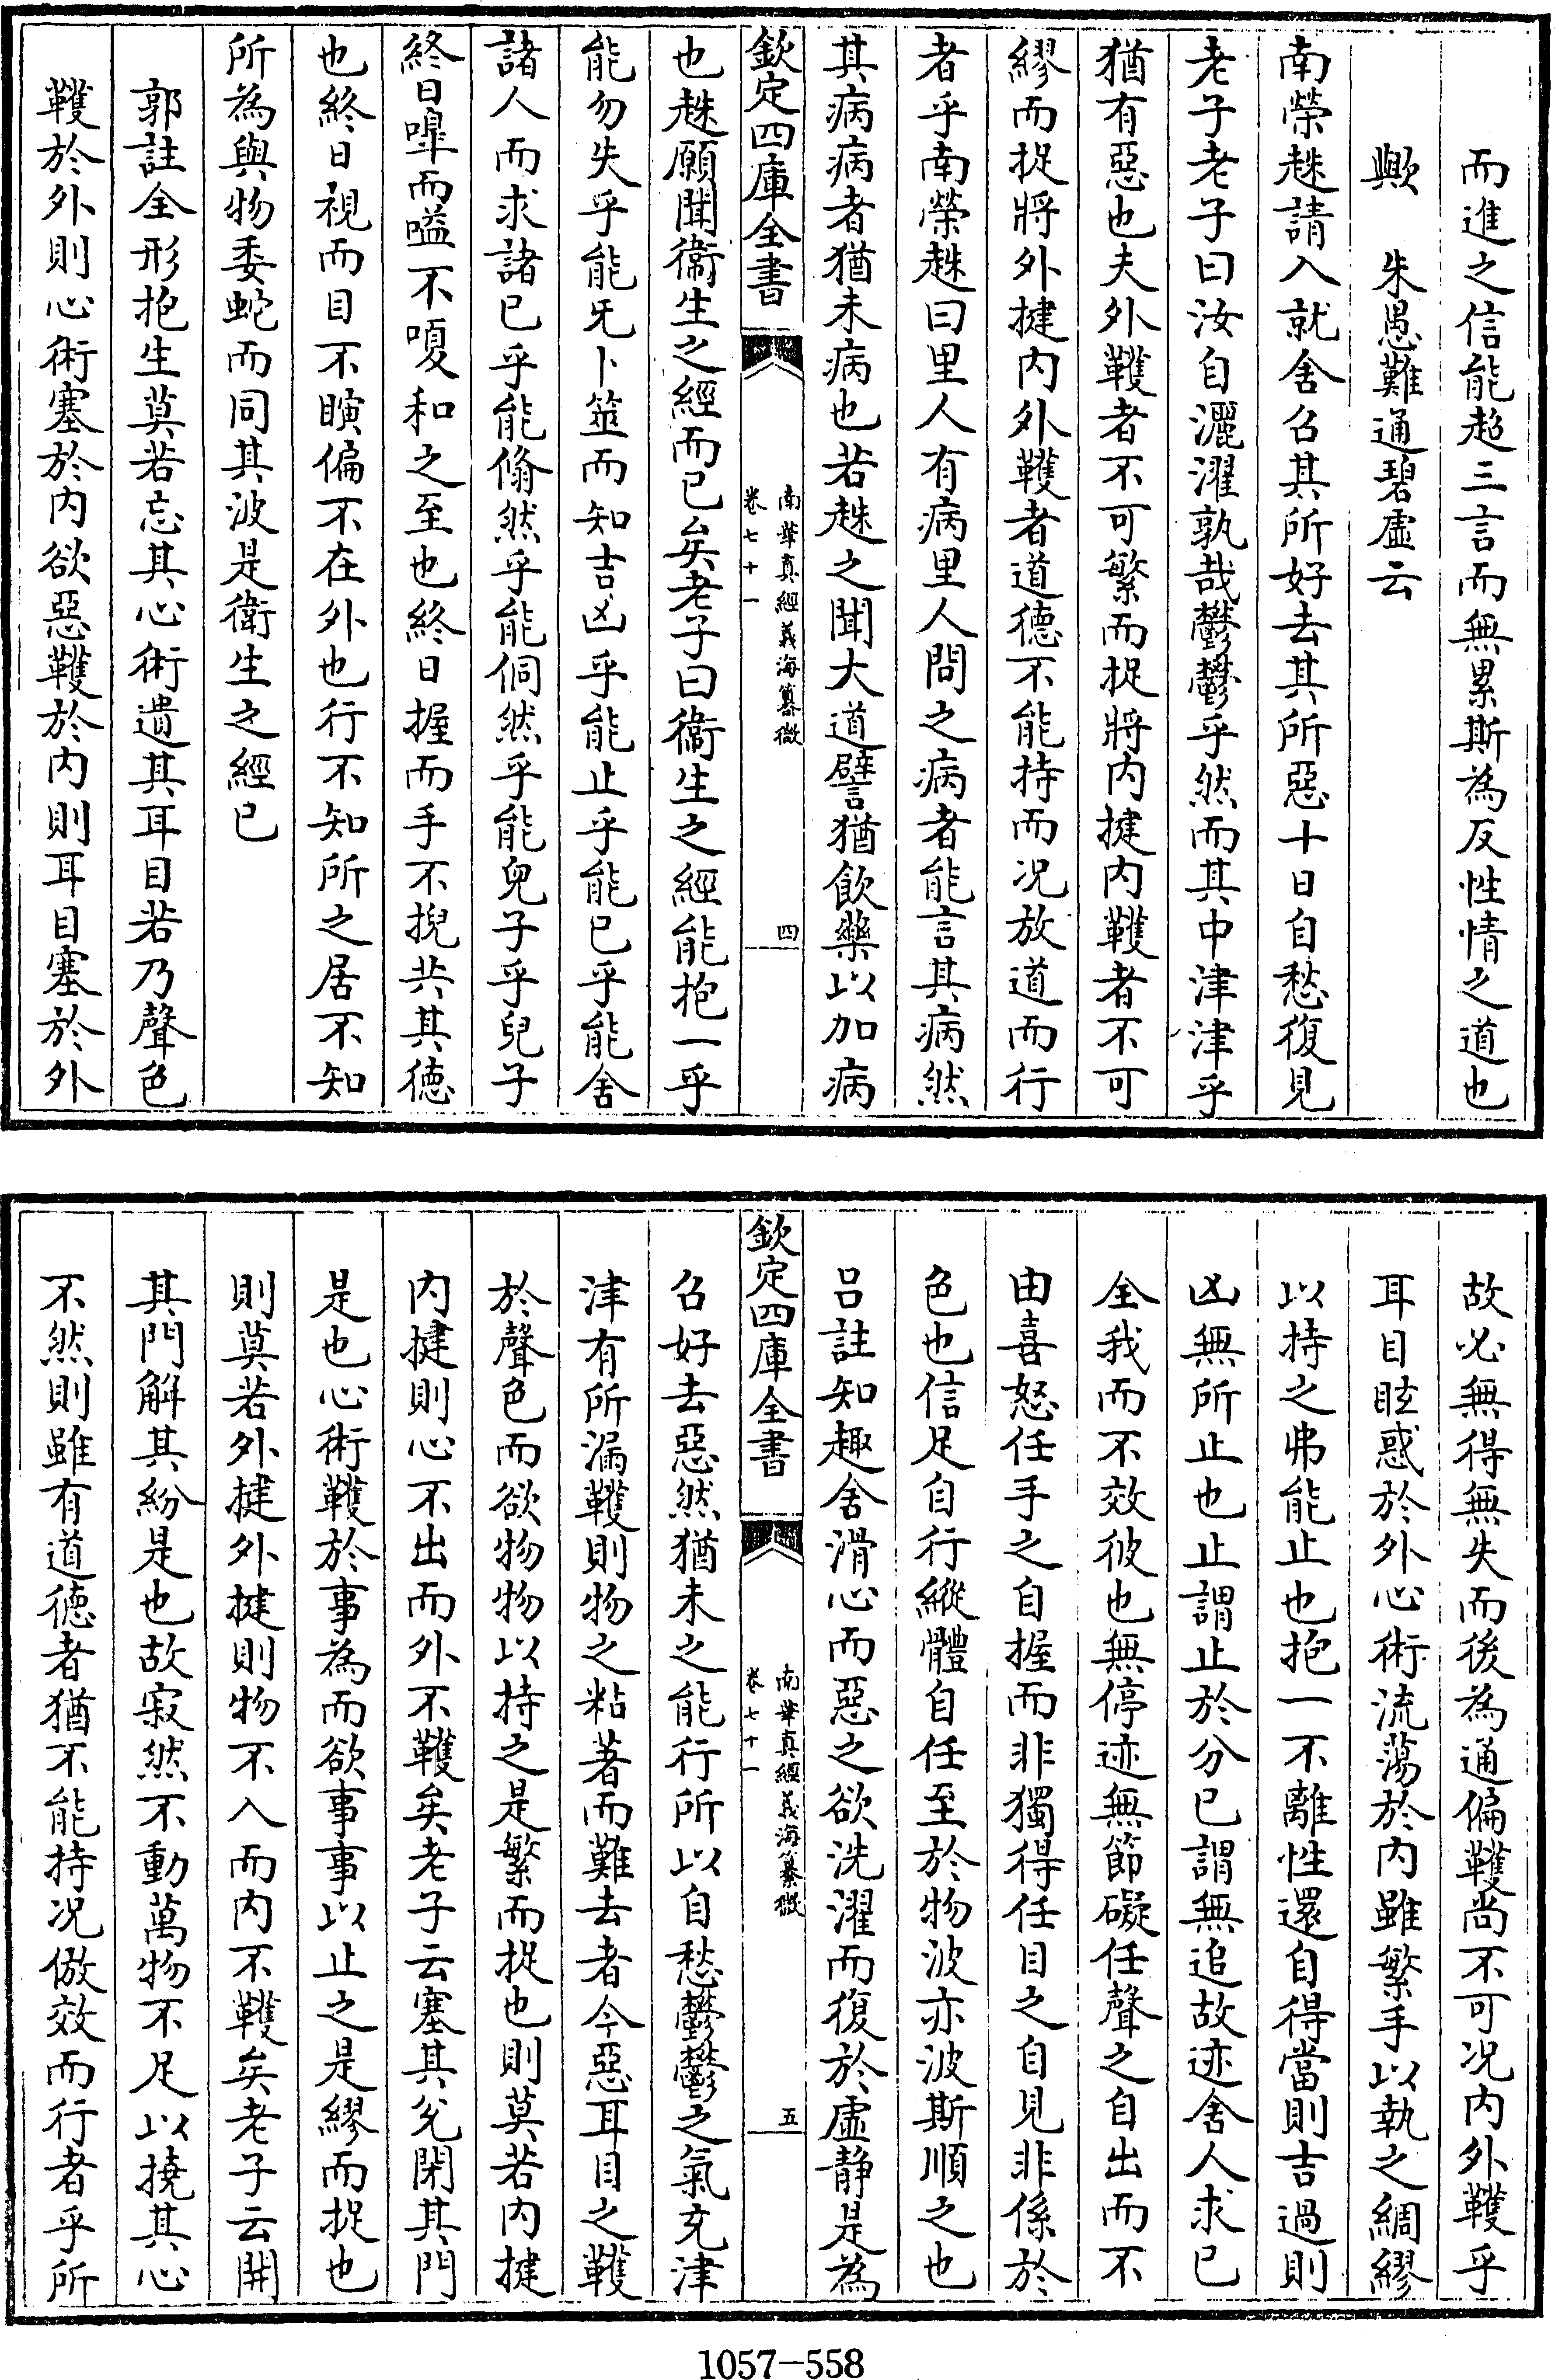 而進之信能超三言而無累斯為反性情之道也
歟　朱愚難通碧虛云
南榮趎請入就舍召其所好去其所惡十日自愁復見
老子老子曰汝自灑濯孰哉鬱鬱乎然而其中津津乎
猶有惡也夫外韄者不可繁而捉將內揵內韄者不可
繆而捉將外揵內外韄者道德不能持而况放道而行
者乎南榮趎曰里人有病里人問之病者能言其病然
其病病者猶未病也若趎之聞大道譬猶飲藥以加病
欽定四庫全書
南華真經義海纂微
卷七十一
四
也趎願聞衞生之經而已矣老子曰衞生之經能抱一乎
能勿失乎能旡卜筮而知吉凶乎能止乎能已乎能舍
諸人而求諸已乎能翛然乎能侗然乎能兒子乎兒子
終日嘷而嗌不嗄和之至也終日握而手不掜共其德
也終日視而目不瞚偏不在外也行不知所之居不知
所為與物委蛇而同其波是衛生之經已
郭註全形抱生莫若忘其心術遺其耳目若乃聲色
韄於外則心術塞於內欲惡韄於內則耳目塞於外
故必無得無失而後為通偏韄尚不可况内外韄乎
耳目眩惑於外心術流蕩於内雖繁手以執之綢繆
以持之弗能止也抱一不離性還自得當則吉過則
凶無所止也止謂止於分已謂無追故迹舍人求已
全我而不效彼也無停迹無節礙任聲之自出而不
由喜怒任手之自握而非獨得任目之自見非係於
色也信足自行縱體自任至於物波亦波斯順之也
吕註知趣舍滑心而惡之欲洗濯而復於虛靜是為
欽定四庫全書
南華真經義海纂微
卷七十一
五
召好去惡然猶未之能行所以自愁鬱鬱之氣充津
津有所漏韄則物之粘著而難去者今惡耳目之韄
於聲色而欲物物以持之是繁而捉也則莫若内揵
内揵則心不出而外不韄矣老子云塞其兌閉其門
是也心術韄於事為而欲事事以止之是繆而捉也
則莫若外揵外揵則物不入而内不韄矣老子云開
其門解其紛是也故寂然不動萬物不足以撓其心
不然則雖有道德者猶不能持况倣效而行者乎所
1057-558